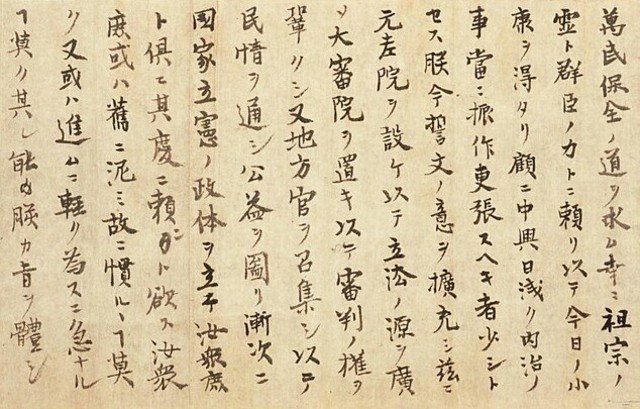 萬民保全ノ道ヲ求ム幸ニ祖宗ノ
靈ト群臣ノ力トニ頼リ以テ今日ノ小
康ヲ得タリ顧ニ中興日浅ク内治ノ
事當ニ振作更張スヘキ者少シト
セス朕今誓文ノ意ヲ擴充シ茲ニ
元老院ヲ設ケ以テ立法ノ源ヲ廣
メ大審院ヲ置キ以テ審判ノ權ヲ
鞏クシ又地方官ヲ召集シ以テ
民情ヲ通シ公益ヲ圖リ漸次ニ
國家立憲ノ政体ヲ立テ汝衆庶
ト倶ニ其慶ニ頼ント欲ス汝衆
庶或ハ舊ニ泥ミ故ニ慣ルヽヿ莫
ク又或ハ進ムニ軽ク為スニ急ナル
ヿ莫ク其レ能ク朕カ旨ヲ體シ